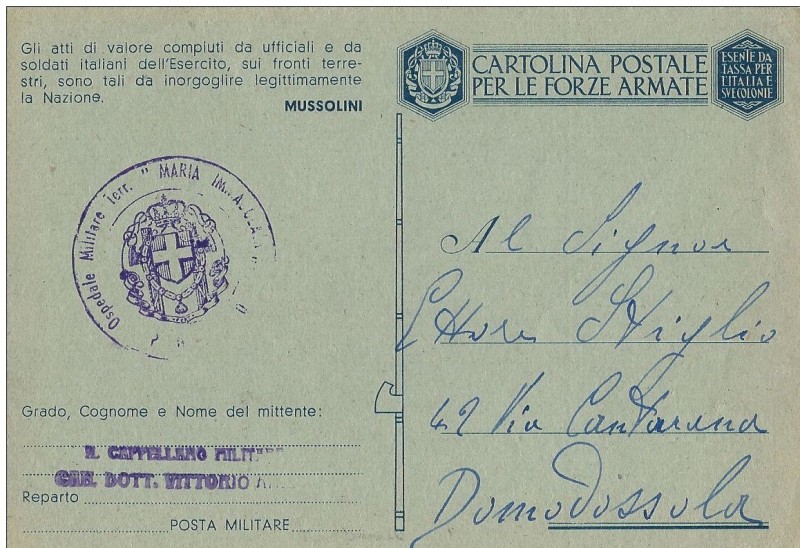 Gli atti di valore compiuti da ufficiali e da
soldati italiani dell'Esercito, sui fronti terre-
stri, sono tali da inorgoglire legittimamente
la Nazione.
MUSSOLINI
CARTOLINA POSTALE
PER LE FORZE ARMATE
ESENTE DA
TASSA PER
L'ITALIA E
SVE COLONIE
Ospedale Militare Terr. " MARIA
Al Signor
Ettore Stiglio
42 Via Cantarana
Domodossola
Grado, Cognome e Nome del mittente:
IL CAPPELLANO MILITARE
DOTT. VITTORIO
Reparto
POSTA MILITARE